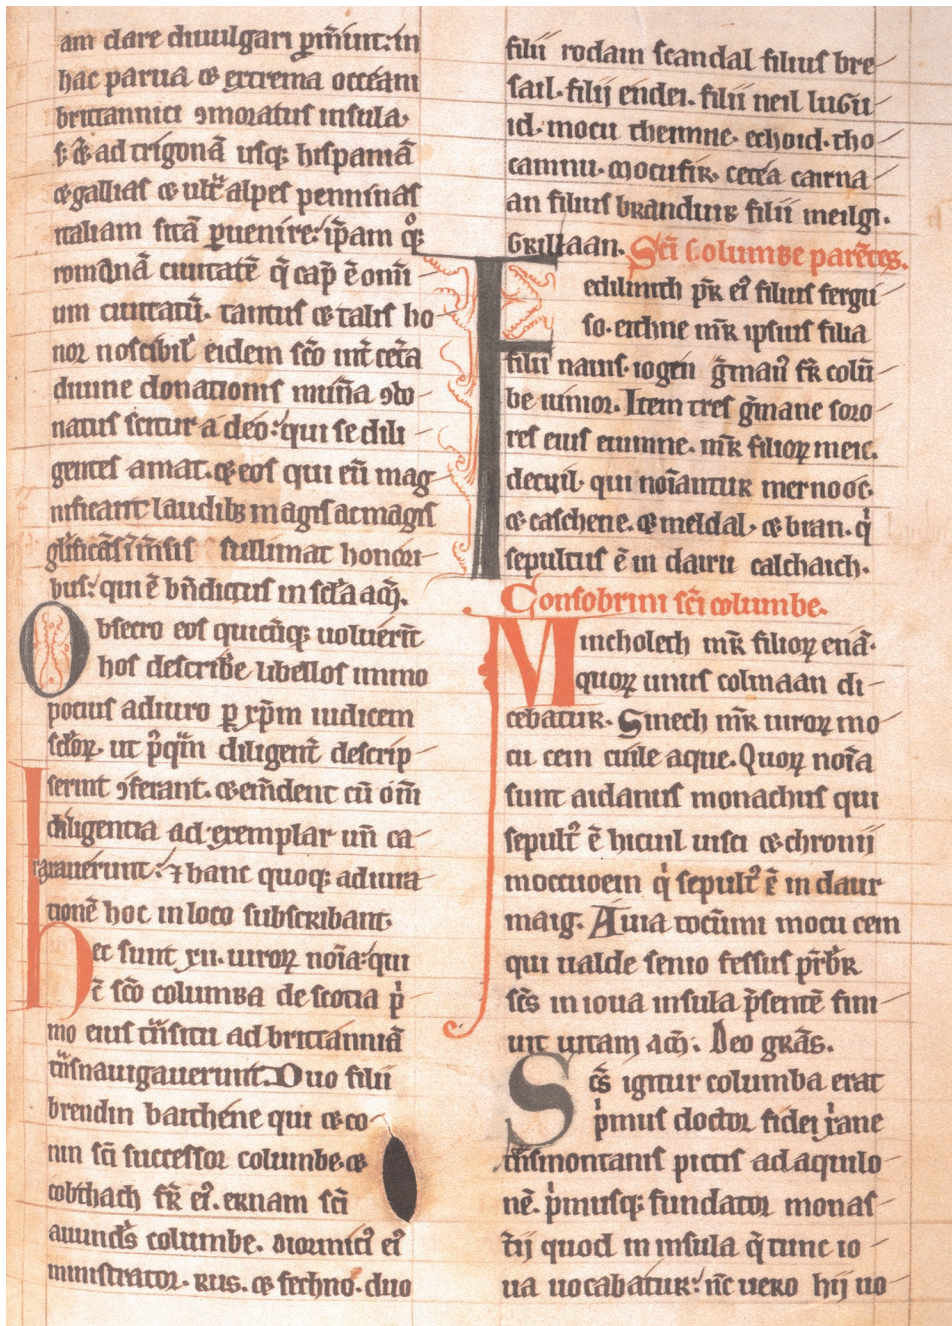 am dare diuulgari ꝓmīunt: in
hac parua & extrema occeani
brittannici ꝯmoratus insula.
s; & ad trigonā usq; hispaniā
& gallias & ult̄ alpes penninas
italiam sitā ꝑuenire: ip̄am qͦq;
romanā ciuitatē q̄ cap̄ ē omīū
um ciuitatū. tantus & talis ho
nor noscibil' eidem sc̄o int̄ cet̄a
diuine donationis mun̄a ꝯdo
natus scitur a deo: qui se dili
gentes amat. & eos qui eū mag
nificant laudibꝫ magis ac magis
gl'ificās īm̄sis sullimat honori
bus: qui ē bn̄dictus in sc̄la am̄.
Obsecro eos quicūq; uoluer̄it
hos describ̄e libellos immo
potius adiuro ꝑ xp̄m iudicem
sc̄loꝝ. ut p̄qm̄ diligent̄ descrip
serint ꝯferant. & em̄dent cū om̄i
diligentia ad exemplar un̄ ca
raxauerunt: ⁊ hanc quoq; adiura
tionē hoc in loco subscribant.
Hec sunt xii. uiroꝝ noīa: qui
c̄ sc̄o columba de scotia p̄
mo eius tn̄situ ad brittanniā
tn̄snauigauerunt. Duo filii
brendin baithene qui & co
nin sc̄i successor columbe. &
cobthach fr̄ ei'. ernam sc̄i
auuncl's columbe. diormici' ei'
ministrator. rus. & fechno. duo
filii rodain scandal filius bre
sail. filij endei. filii neil luGu
id. mocu themne. echoid. tho
cannu. mocufir. cetea cairna
an filius branduib filii meilgi.
Grillaan. Sc̄i Columbe parētes.
Fedilimith pr̄ ei' filius fergu
so. eithne mr̄ ipsius filia
filii nauis. iogen ḡman' fr̄ colū
be iunior. Item tres ḡmane soro
res eius cuimne. mr̄ filioꝝ meic
decuil. qui noīantur mernooc.
& caschene. & meldal. & bran. q̄
sepultus ē in dairu calchaich.
Consobrini sc̄i columbe.
Mincholech mr̄ filioꝝ enā.
quoꝝ unus colmaan di
cebatur. Sinech mr̄ uiroꝝ mo
cu cein cuile aque. Quoꝝ noīa
sunt aidanus monachus qui
sepult' ē hi cuil uisci & chronij
moccucein q̄ sepult' ē in daur
maig. Auia tocūmi mocu cein
qui ualde senio fessus pr̄br
sc̄s in ioua insula p̄sentē fini
uit uitam am̄. Deo grās.
Sc̄s igitur columba erat
p̄mus doctor fidei x̄iane
tn̄smontanis pictis ad aquilo
nē. p̄musq; fundator monas
t̄ij quod in insula q̄ tunc io
ua uocabatur: nc̄ uero hij uo